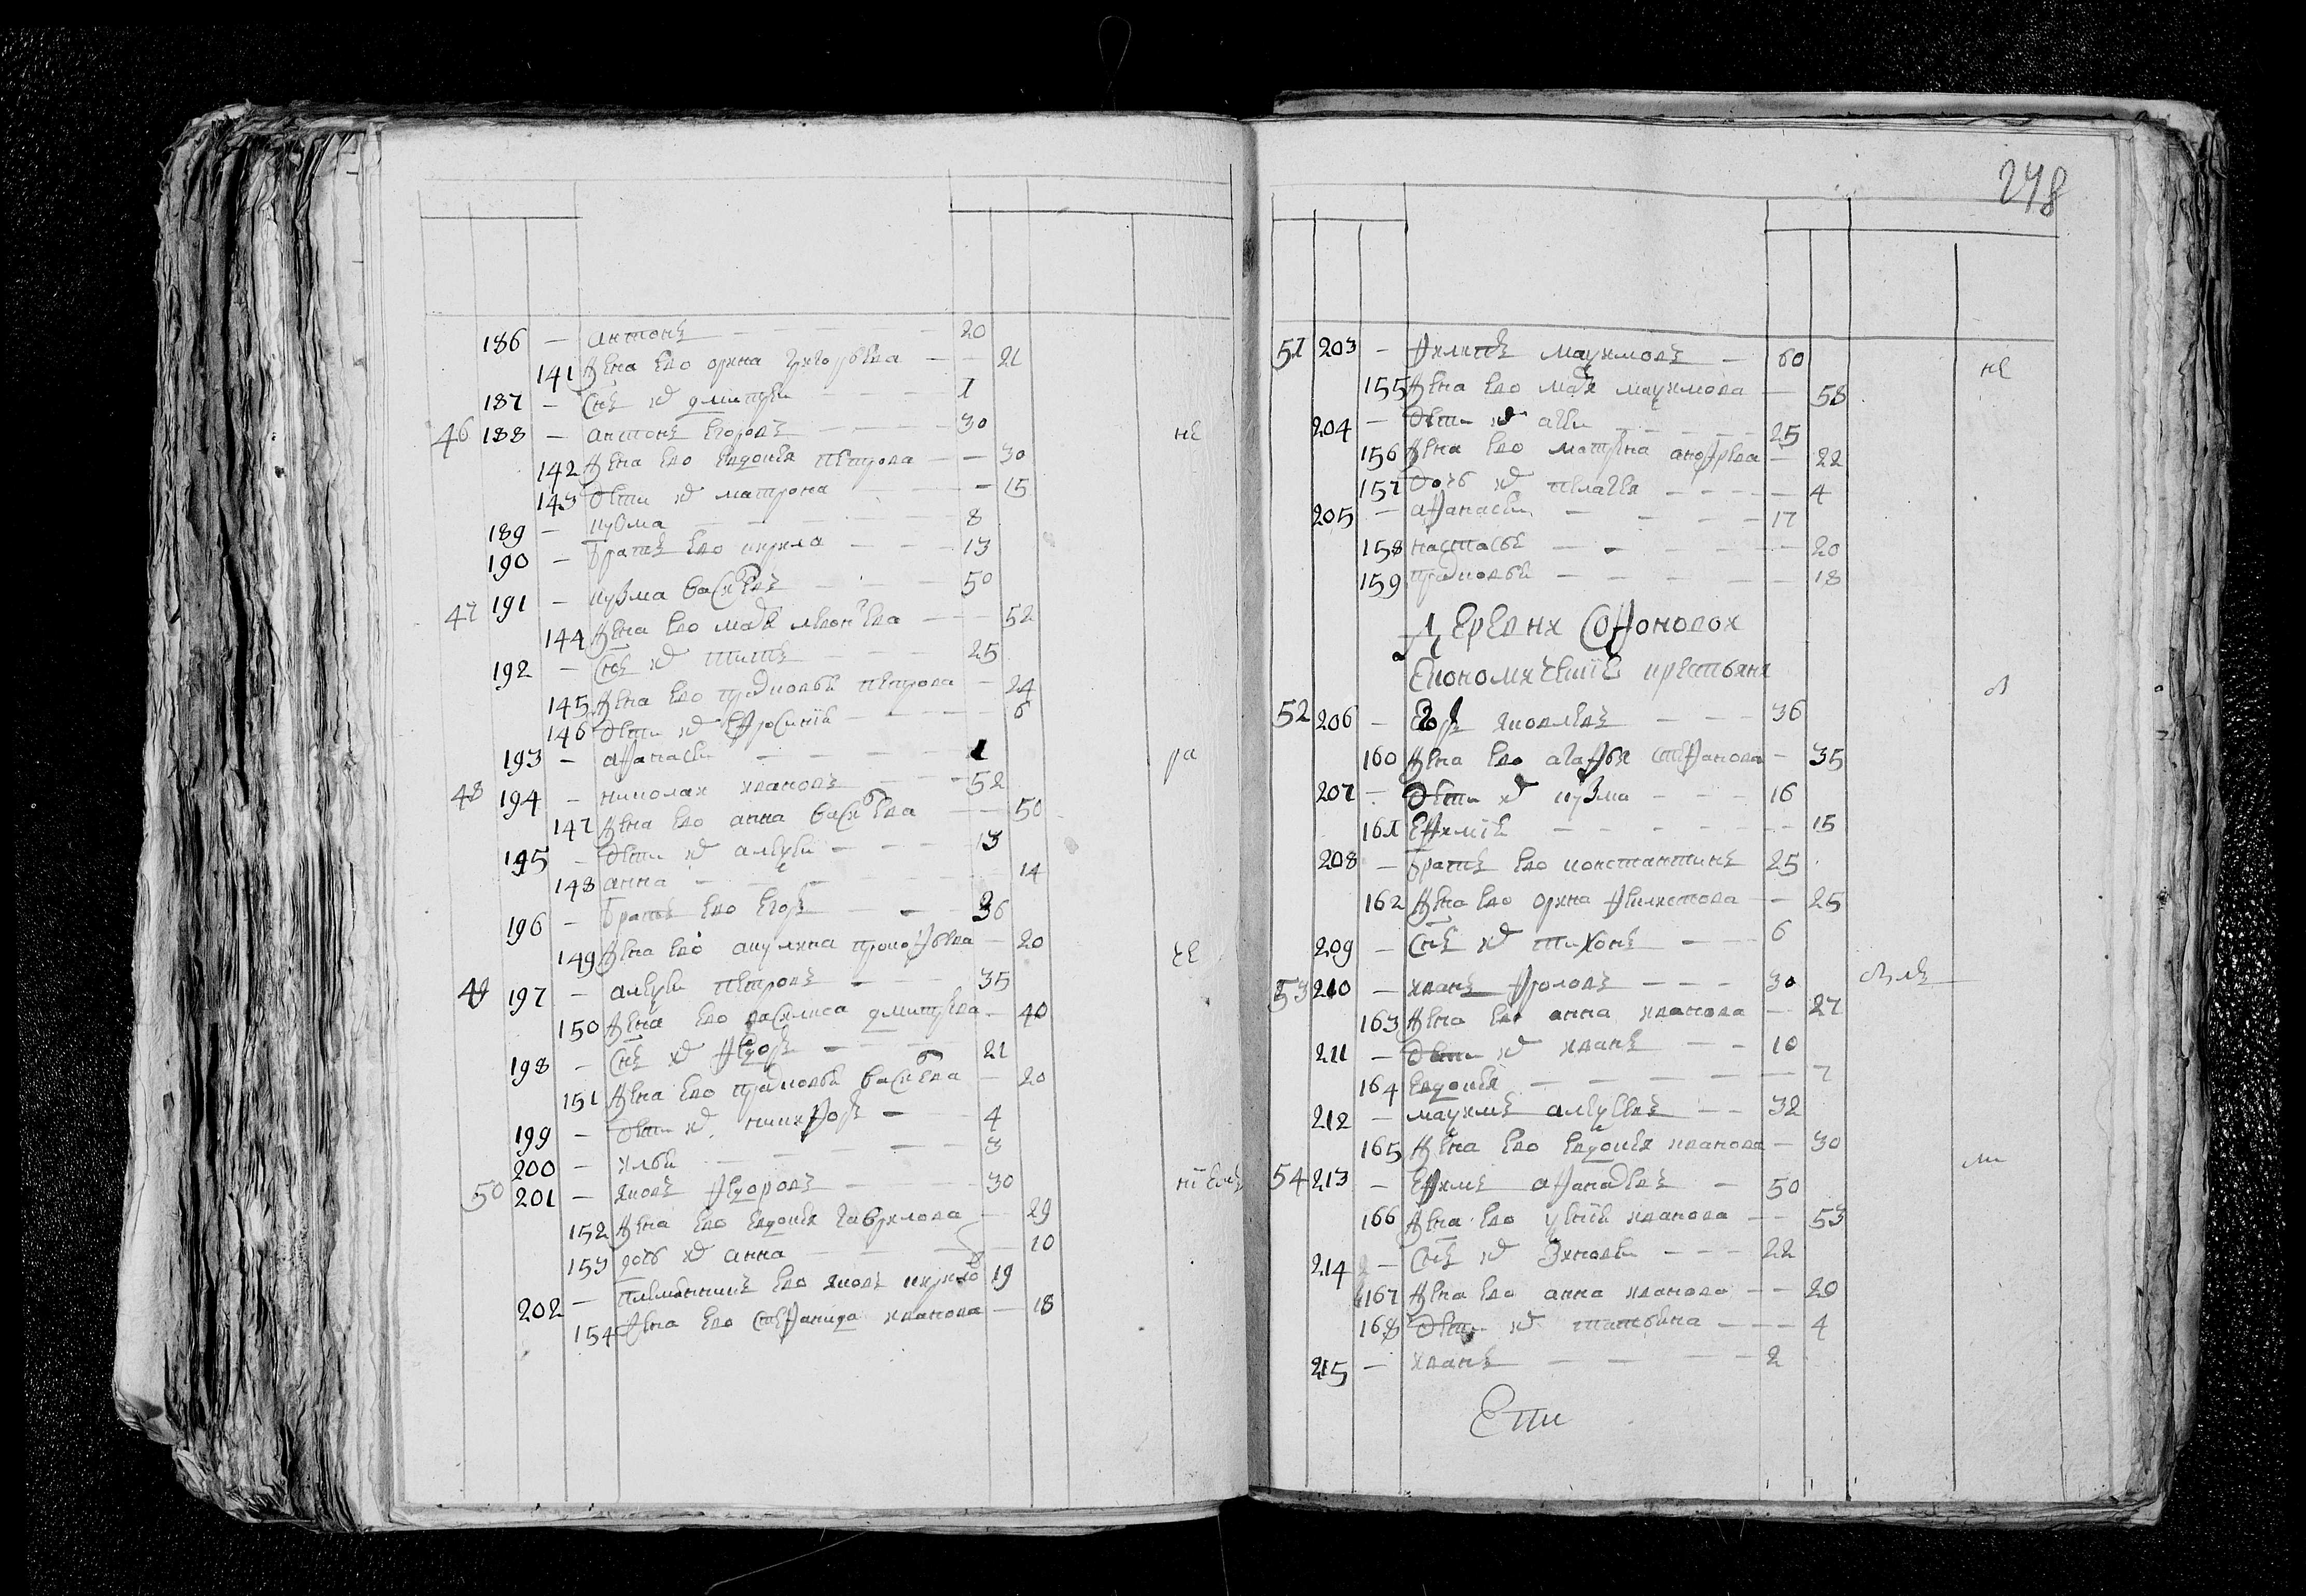 186 — антонъ — 20
141 жена ево орина григорьева — 21
187 — снъ их дмитреи — 1
46 188 — антонъ егоровъ — 30 не
142 жена ево евдокея петрова — 30
143 дети их матрона — 15
189 — кузма — 8
190 — братъ ево кирила — 13
47 191 — кузма васильевъ — 50
144 жена ево марья леонтьева — 52
192 — снъ их титъ — 25
145 жена ево прасковья петрова — 24
146 дети их ефросинья — 6
193 — афанасеи — 1 ра
48 194 — николаи ивановъ — 52
147 жена ево анна васильева — 50
195 — дети их алексеи — 13
148 анна — 14
196 — братъ ево егоръ — 36
149 жена ево акулина прокофьева — 20 че
49 197 — алексеи петровъ — 35
150 жена ево васили́са дмитрева — 40
198 — снъ их федоръ — 21
151 жена ево прасковья васильева — 20
199 — дети их никифоръ — 4
200 — илья — 3
50 201 — яковъ федоровъ — 30
152 жена ево евдокея гаврилова — 29
153 дочь их анна — 10
202 — племянникъ ево яковъ кирилов 19
154 жена ево степанида иванова — 18
248
51 203 — филипъ маξимовъ — 60 не
155 жена ево марья маξимова — 58
204 — дети их агеи — 25
156 жена ево матрена аноφрева — 22
157 дочь их пелагея — 4
205 — афанасеи — 17
158 настасья — 20
159 прасковья — 18
Деревня Софоновои
економические крестьяня
52 206 — егоръ яковлевъ — 36
160 жена ево агафья степанова — 35
207 — дети их кузма — 16
161 ефимїя — 15
208 — братъ ево константинъ 25
162 жена ево орина феликстова — 25
209 — снъ их тихонъ — 6
53 210 — иванъ фроловъ — 30
163 жена ево анна иванова — 27
211 — дети их иванъ — 10
164 евдокея — 7
212 — маξимъ алеξеевъ — 32
165 жена ево евдокея иванова — 30
54 213 — ефимъ афанасьевъ — 50
166 жена ево ксенїя иванова — 53
214 — снъ их зиновеи — 22
167 жена ево анна иванова — 20
168 дети их татьяна — 4
215 — иванъ — 2